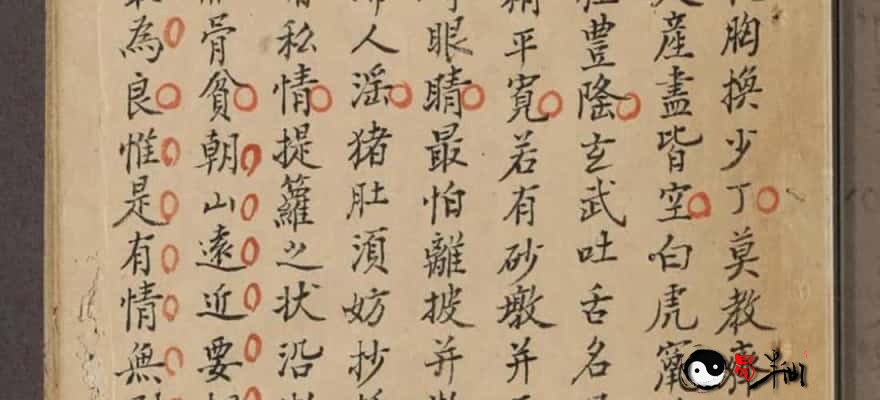 胸換少丁莫教
產盡皆空白虎
豊隆玄武吐舌名
精平寬若有砂墩并
眼睛最怕離披并
人淫猪肚湏妨抄
私情提籮之状沿
骨貧朝山遠近要
為良惟是有情無